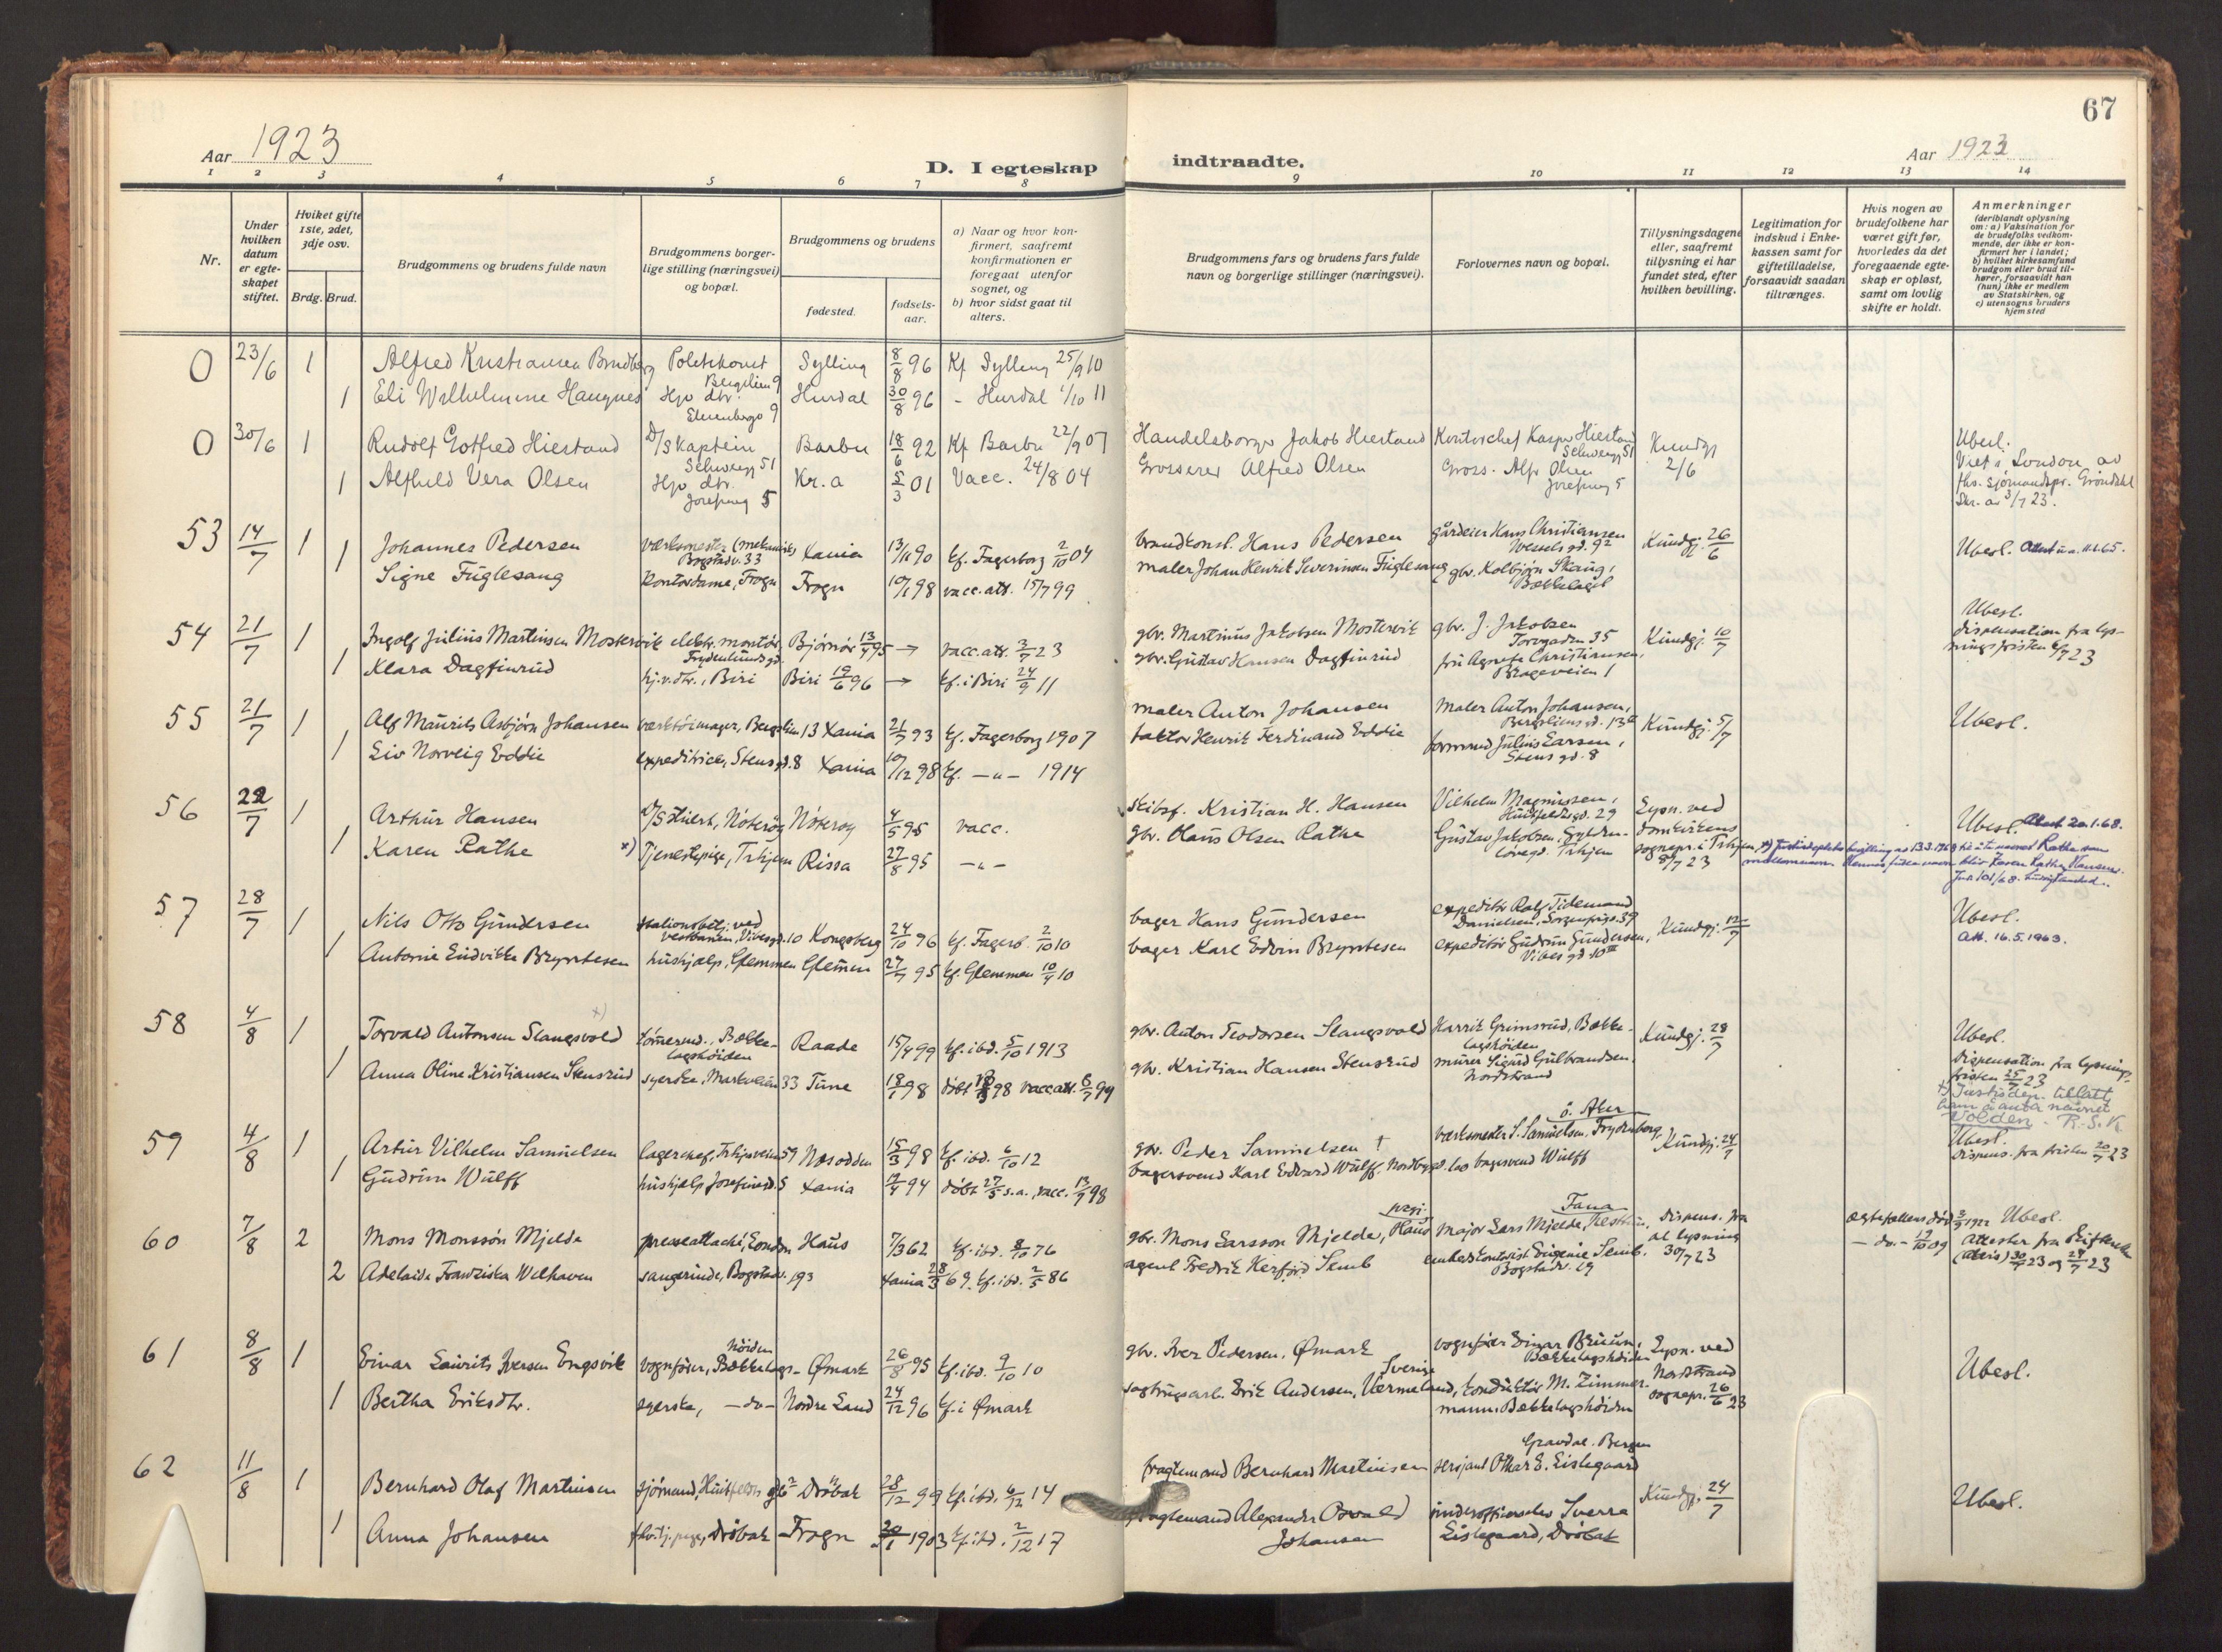 67
Aar 1923
D. I egteskap indtraadte.
Aar 1923
1 2 3 4 5 6 7 8 9 10 11 12 13 14
Nr.
Under hvilken datum er egteskapet stiftet.
Hviket gifte 1ste, 2det, 3dje osv.
Brdg. Brud.
Brudgommens og brudens fulde navn
Brudgommens borgerlige stilling (næringsvei) og bopæl.
Brudgommens og brudens
fødested.
fødselsaar.
a) Naar og hvor konfirmert, saafremt konfirmationen er foregaat utenfor sognet, og
b) hvor sidst gaat til alters.
Brudgommens fars og brudens fars fulde navn og borgerlige stillinger (næringsvei).
Forlovernes navn og bopæl.
Tillysningsdagene eller, saafremt tillysning ei har fundet sted, efter hvilken bevilling.
Legitimation for indskud i Enkekassen samt for giftetilladelse, forsaavidt saadan tiltrænges.
Hvis nogen av brudefolkene har været gift før, hvorledes da det foregaaende egteskap er opløst, samt om lovlig skifte er holdt.
Anmerkninger (deriblandt oplysning om: a) Vaksination for de brudefolks vedkommende, der ikke er konfirmert her i landet; b) hvilket kirkesamfund brudgom eller brud tilhører, forsaavidt han (hun) ikke er medlem av Statskirken, og c) utensogns bruders hjemsted
0 23/6 1 Alfred Kristiansen Politikonst Sylling 8/8 96 Kf Sylling 25/9 10
1 Eli Wilhelmine Haugnes Hjv dtr. Hurdal 30/8 96 - Hurdal 1/10 11
0 30/6 1 Rudolf Gotfred Hiestand D/S Kaptein Barbu 18/6 92 Kf Barbu 22/9 07 Jakob Hiestand Kontorchef Kasper Hiestand Kundgj 2/6 Ubesl.
1 Alfhild Vera Olsen Hjv dtr. Josefinesg 5 Kr.a 5/3 01 Vacc. 24/8 04 Grosserer Alfred Olsen Gross. Alfr Olsen Viet i London av
Sjømandspr. Grøndahl
Skr. av 3/7 23.
53 14/7 1 Johannes Pedersen Bogstadv. 33 Xania 13/11 90 kf. Fagerborg 2/10 04 Hans Pedersen gårdeier Hans Christiansen Wessels gd. 9 Kundgj. 26/6 Ubesl.
1 Signe Fuglesang Kontordame, Frogn Frogn 10/1 98 vacc.att. 15/7 99 maler Johan Henrik Severinsen Fuglesang gbr. Kolbjørn Skaug, Bækkelaget
54 21/7 1 Ingolf Julius Martinsen Mostervik elektr. montør, Frydenlundsgd. Bjørnør 13/4 95 → vacc.att. 2/7 23 gbr. Martinus Jakobsen Mostervik gbr. J. Jakobsen Torvgaden 35 Kundgj. 10/7 Ubesl. dispensation fra lysningsfristen 6/7 23
1 Klara Dagfinrud hj.v.dtr., Biri Biri 19/6 96 → kf. i Biri 24/9 11 gbr. Gustav Hansen Dagfinrud fru Agnete Christiansen, Brageveien 1
55 21/7 1 Alf Maurits Asbjørn Johansen 13 Xania 21/7 93 kf. Fagerborg 1907 maler Anton Johansen Maler Anton Johansen, Bergsliens gd. 13 Kundgj. 5/7 Ubesl.
1 Liv Norveig Eddie expeditrice, Stens gd. 8 Xania 10/12 98 kf. -"- 1914 faktor Henrik Ferdinand Eddie formand Julius Larsen, Stens gd. 8
56 22/7 1 Arthur Hansen Nøterøy Nøterøy 4/5 95 vacc. Skibsf. Kristian H. Hansen Vilhelm Magnussen, Huitfeldtsgd. 29 Lysn. ved domkirkens sognepr. i Trhjem 8/7 23 Ubesl.
1 Karen Rathe x) Tjenestepige, Trhjem Rissa 27/8 95 -"- gbr. Hans Olsen Rathe Gustav Jakobsen, Trhjem
57 28/7 1 Nils Otto Gundersen stationsbetj. ved vestbanen, Vibesgd. 10 Kongsberg 24/10 96 kf. Fagerb. 2/10 10 bager Hans Gundersen expeditør Ralf Tidemand Danielsen, Sorgenfrigt. 39 Kundgj. 12/7 Ubesl. Att. 16.5.1963.
1 Antonie Eudvikke Bryntesen hushjælp, Glemmen Glemmen 27/7 95 kf. Glemmen 10/4 10 bager Karl Edvin Bryntesen expeditør Gudrun Gundersen, Vibes gd 10 III
58 4/8 1 Torvald Antonsen Slangsvold x) tømmermd., Bækkelagshøiden Raade 15/4 99 kf. ibd. 5/10 1913 gbr. Anton Teodorsen Slangsvold Grimsrud, Bækkelagshøiden Kundgj. 28/7 Ubesl.
1 Anna Oline Kristiansen Stensrud syerske, Markveien 33 Tune 18/1 98 døbt 98 vacc.att. 6/7 99 gbr. Kristian Hansen Stensrud murer Sigurd Gulbrandsen, Nordstrand Dispensation fra lysningsfristen 25/7 23
x) Justisdep. tillatt ham å anta navnet Volden - R.S.K.
59 4/8 1 Artur Vilhelm Samuelsen lagerchef, Trhjsveien 59 Nesodden 15/3 98 kf. ibd. 6/10 12 gbr. Peder Samuelsen † værksmester S. Samuelsen, Frydenberg, ö. Aker Kundgj. 24/7 Ubesl. Dispens. fra fristen 20/7 23
1 Gudrun Wulff hushjælp Josefinesgd. 5 Xania 12/4 94 døbt 27/5 s.a., vacc. 13/7 98 bagersvend Karl Edvard Wulff, bagersvend Wulff
60 7/8 2 Mons Monssøn Mjelde presseattaché, London Haus 7/3 62 kf. ibd. 8/10 76 gbr. Mons Larsson Mjelde, Haus major Lars Mjelde, Fana Dispens. fra al lysning 30/7 23 ægtefællens død 3/3 1922 Ubesl.
2 Adelaide Franziska Welhaven sangerinde, Bogstadv. 193 Xania 28/3 69. kf. ibd. 2/5 86 agent Fredrik Herfjord Semb Eugenie Semb. Bogstadv. 19 - do. - 19/10 09 Attester fra Skifteretten 30/7 23 og 24/7 23
61 8/8 1 Einar Lauritz Iversen Engsvik vognfører, Bækkelagshøiden Ømark 26/8 95 kf. ibd. 9/10 10 gbr. Iver Pedersen, Ømark vognfører Einar Bruun, Bækkelagshøiden Lysn. ved Nordstrand sognepr. 26/6 23 Ubesl.
1 Bertha Eriksdtr. syerske, -do- Nordre Land 24/12 96 kf. i Ømark sagbrugsarb. Erik Andersen, Vermeland, Sverige konduktør M. Zimmermann, Bækkelagshøiden
62 11/8 1 Bernhard Olaf Martinsen sjømand, Huitfeldts gd 6 Drøbak 28/12 99 kf. ibd. 6/12 14 fragtemand Bernhard Martinsen sersjant Othar E. Eislegaard Gravdal. Bergen Kundgj. 24/7 Ubesl.
1 Anna Johansen Drøbak Frogn 1903 kf. ibd. 2/12 17 fragtemand Alexander Osvald Johansen underoffisерselev Sverre Eislegaard, Drøbak